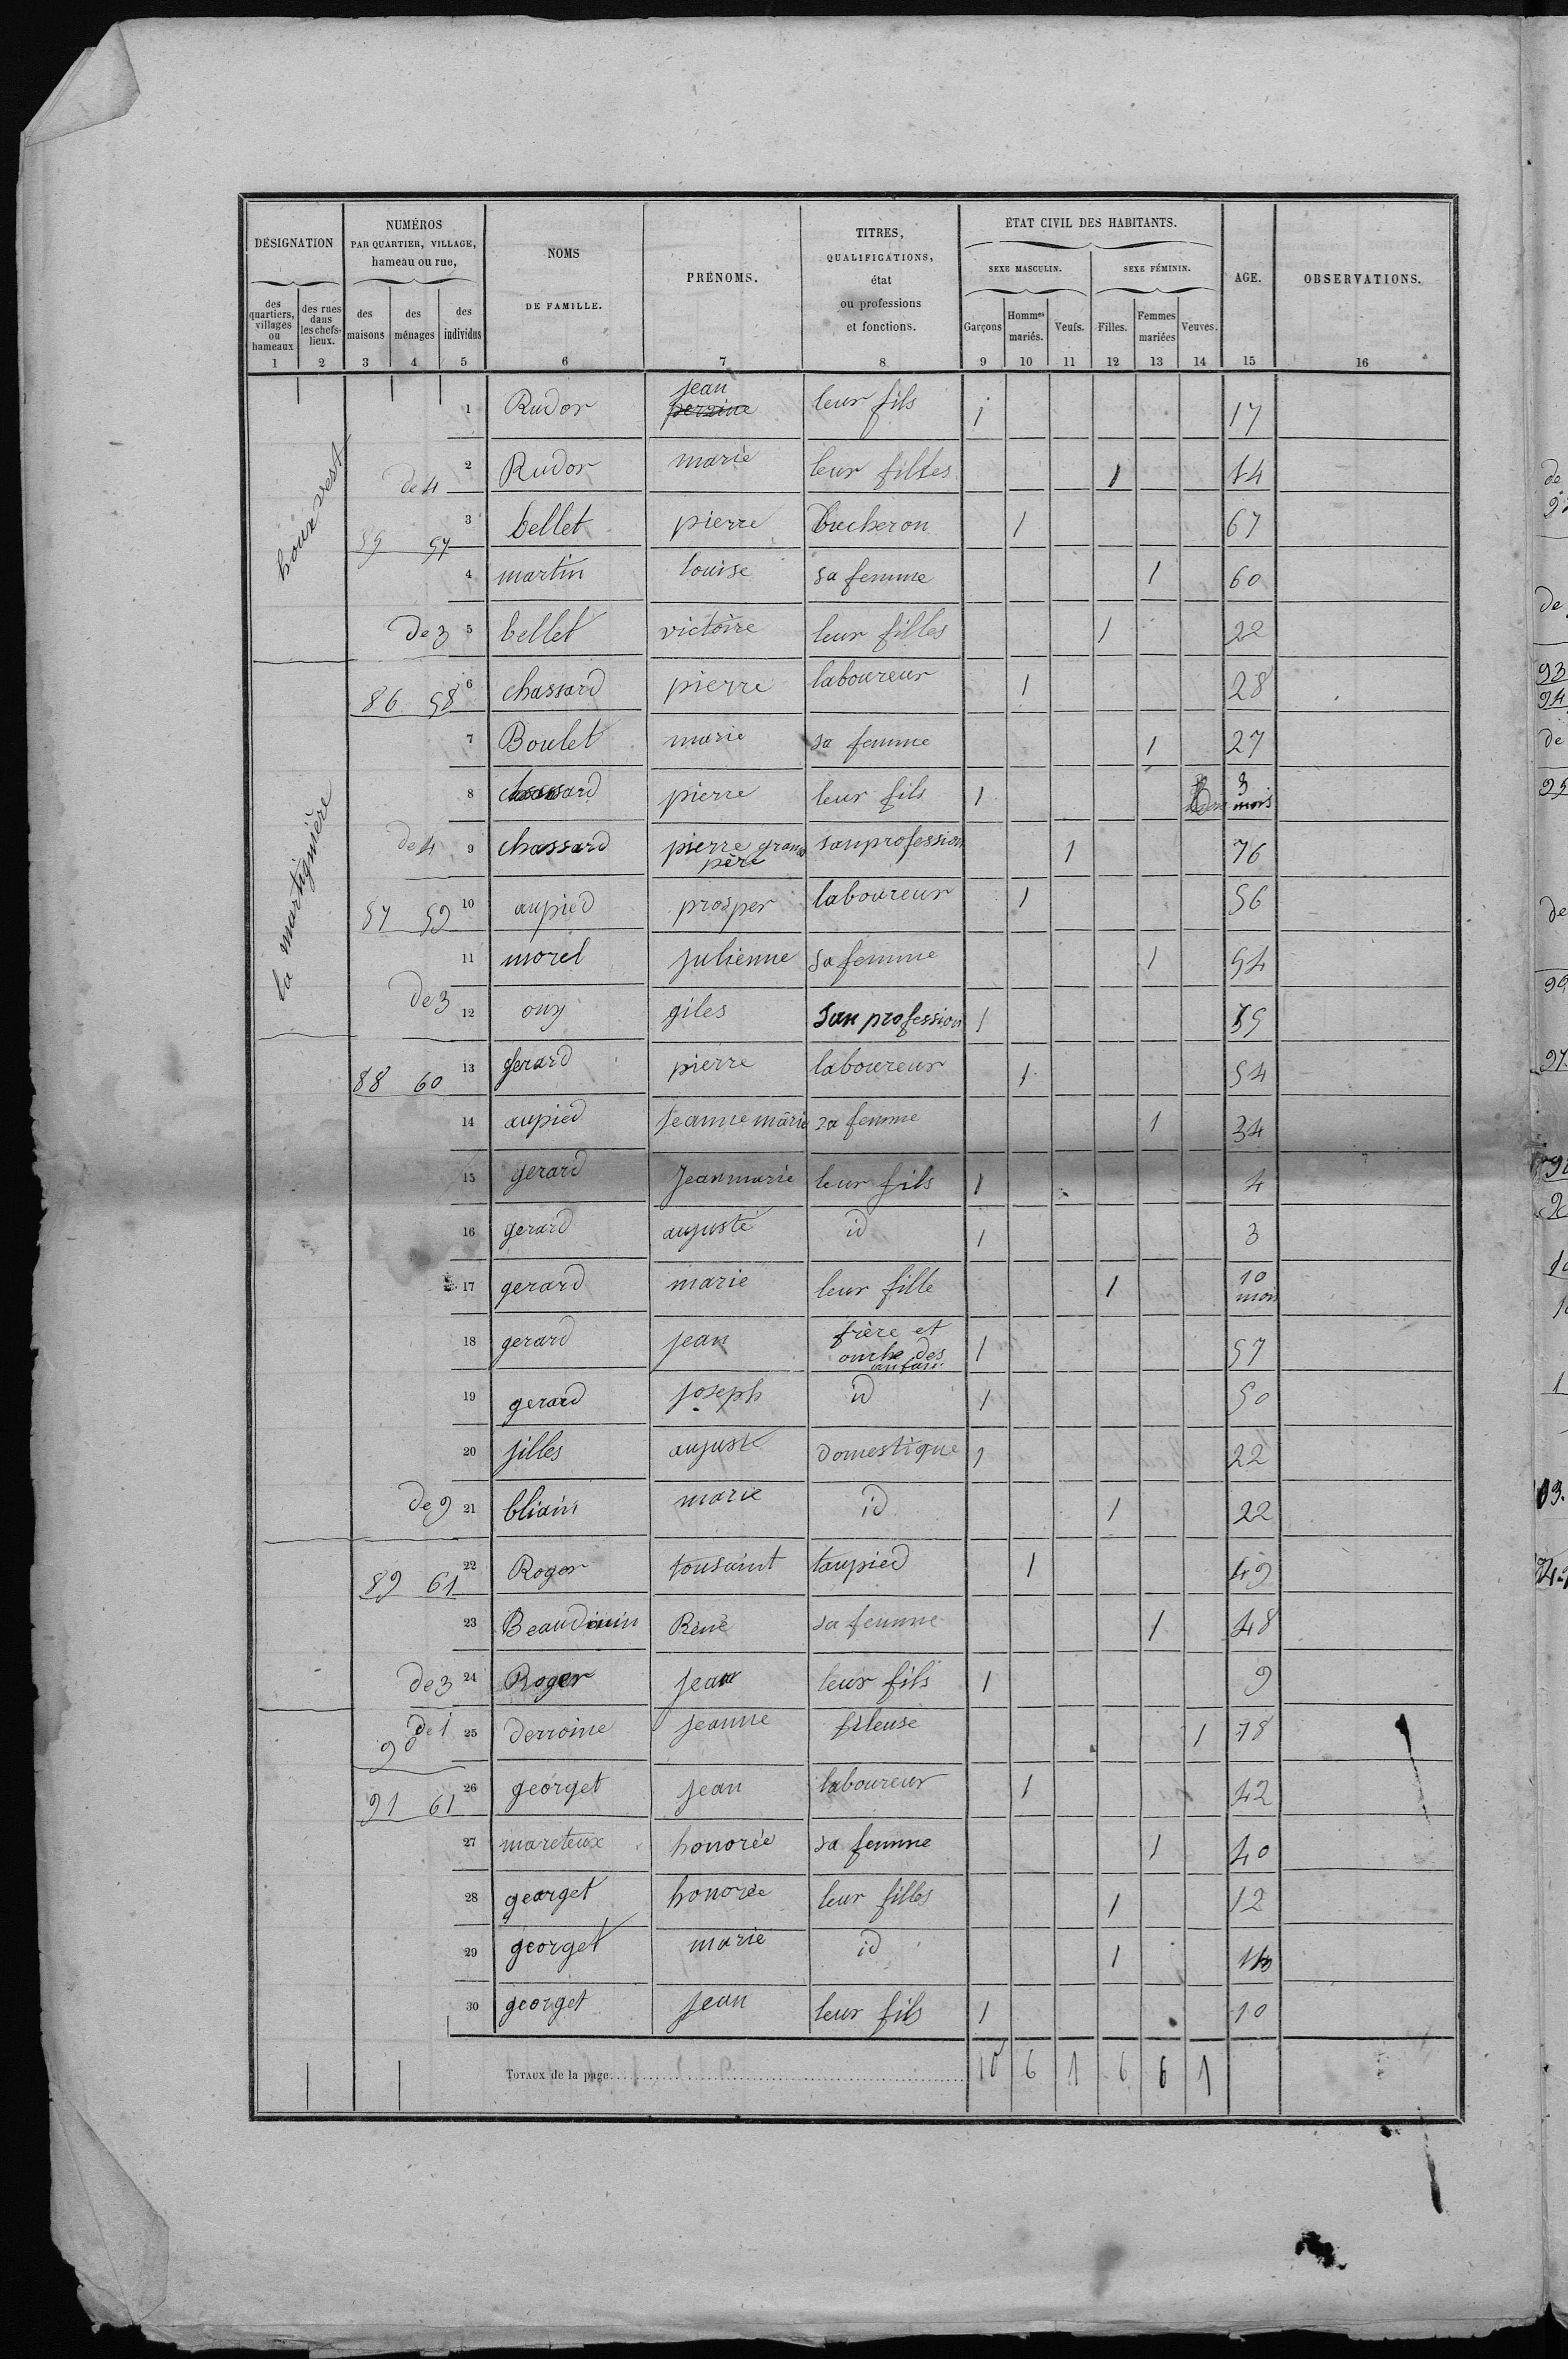 DÉSIGNATION
NUMÉROS
PAR QUARTIER, VILLAGE,
hameau ou rue,
NOMS
DE FAMILLE.
PRÉNOMS.
TITRES,
QUALIFICATIONS,
état
ou professions
et fonctions.
ÉTAT CIVIL DES HABITANTS.
SEXE MASCULIN.
SEXE FÉMININ.
AGE.
OBSERVATIONS.
des quartiers, villages ou hameaux
des rues dans les chefs-lieux.
des maisons
des ménages
des individus
Garçons
Hommes mariés.
Veufs.
Filles.
Femmes mariées
Veuves.
1 2 3 4 5 6 7 8 9 10 11 12 13 14 15 16
1 Rudor jean leur fils 1 17
de 4 2 Rudor marie leur filles 1 14
57 3 bellet pierre bucheron 1 67
4 martin louise sa femme 1 60
de 3 5 bellet victoire leur filles 1 22
la martignière
86 58 6 chassard pierre laboureur 1 28
7 Boulet marie sa femme 1 27
8 chassard pierre leur fils 1 3 mois
de 4 9 chassard pierre grand père san profession 1 76
87 59 10 aupied prosper laboureur 1 56
11 morel julienne sa femme 1 54
de 3 12 ouy giles san profession 1
88 60 13 gerard pierre laboureur 1 54
14 aupied jeanne marie sa femme 1 34
15 gerard jeanmarie leur fils 1 4
16 gerard auguste id 1 3
17 gerard marie leur fille 1 10 mois
18 gerard jean frère et oncle des 1 57
19 gerard joseph id 1 50
20 jilles auguste domestique 1 22
de 9 21 bliain marie id 1 22
89 61 22 Roger tousaint taupied 1 49
23 Beaudouin Réné sa femme 1 48
de 3 24 Roger jean leur fils 1 9
90 de 1 25 derroine jeanne fileuse 1 78
91 61 26 georget jean laboureur 1 42
27 mareteux honorée sa femme 1 40
28 georget honorée leur filles 1 12
29 georget marie id 1
30 georget jean leur fils 1 10
TOTAUX de la page 10 6 1 6 6 1